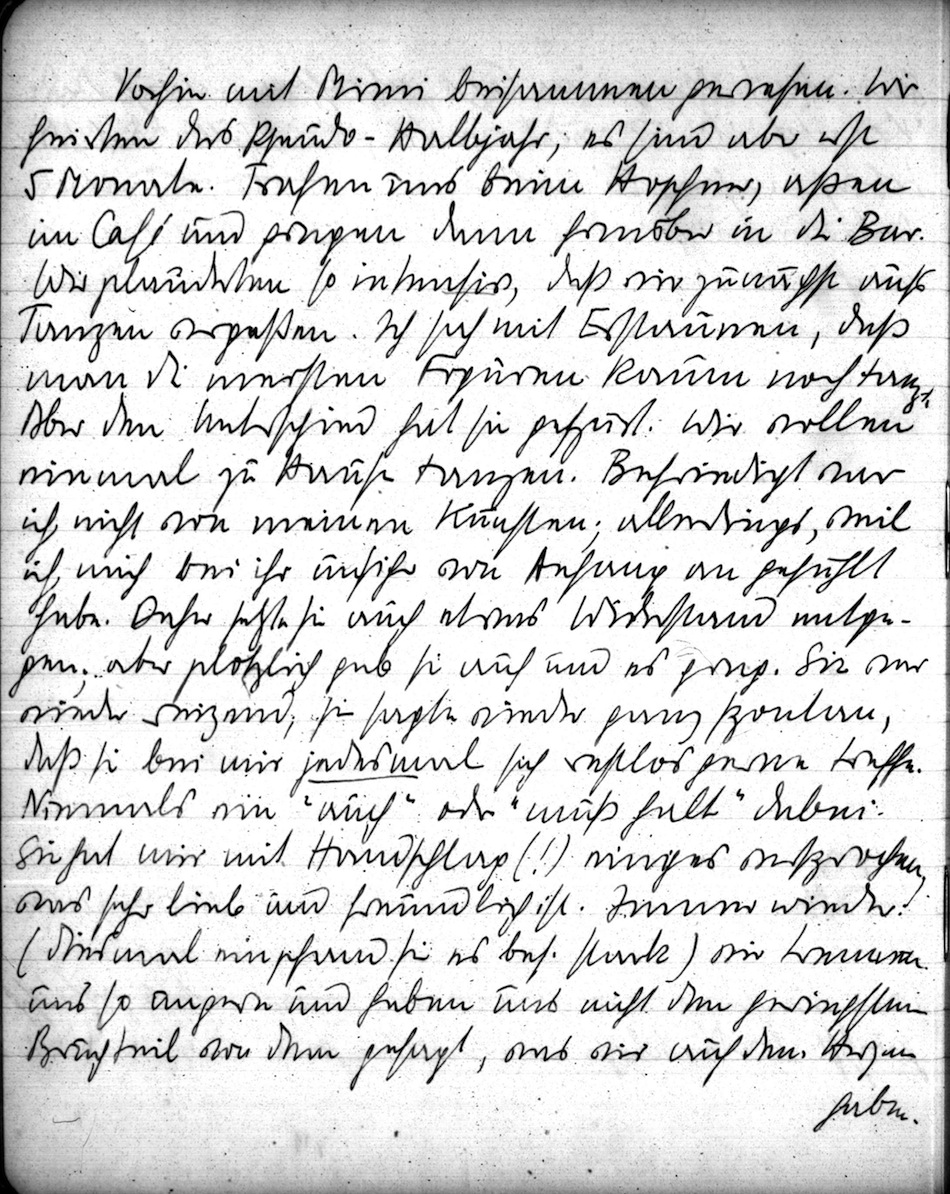 Vorhin mit Mimi beisammen gewesen. Wir
feierten das Pseudo-Halbjahr, es sind aber erst
5 Monate. Trafen uns beim Hopfner, aßen
im Café und gingen dann hinüber in die Bar.
Wir plauderten so intensiv, daß wir zunächst aufs
Tanzen vergaßen. Ich sah mit Erstaunen, daß
man die meisten Figuren kaum noch tanzt.
Aber den Unterschied hat sie gespürt. Wir wollen
einmal zu Hause tanzen. Befriedigt war
ich nicht von meinen Künsten; allerdings, weil
ich mich bei ihr unsicher von Anfang an gefühlt
habe. Daher setzte sie auch etwas Widerstand entge-
gen; aber plötzlich gab sie auf und es ging. Sie war
wieder reizend, sie sagte wieder ganz spontan,
daß sie bei mir jedesmal sich restlos gerne treffe.
Niemals ein "auch" oder "muß halt" dabei.
Sie hat mir mit Handschlag (!) einiges versprochen,
was sehr lieb und freundlich ist. Immer wieder:
(diesmal empfand sie es bes. stark) wir trennen
uns so ungern und haben uns nicht den geringsten
Bruchteil von dem gesagt, was wir auf dem Herzen
haben.